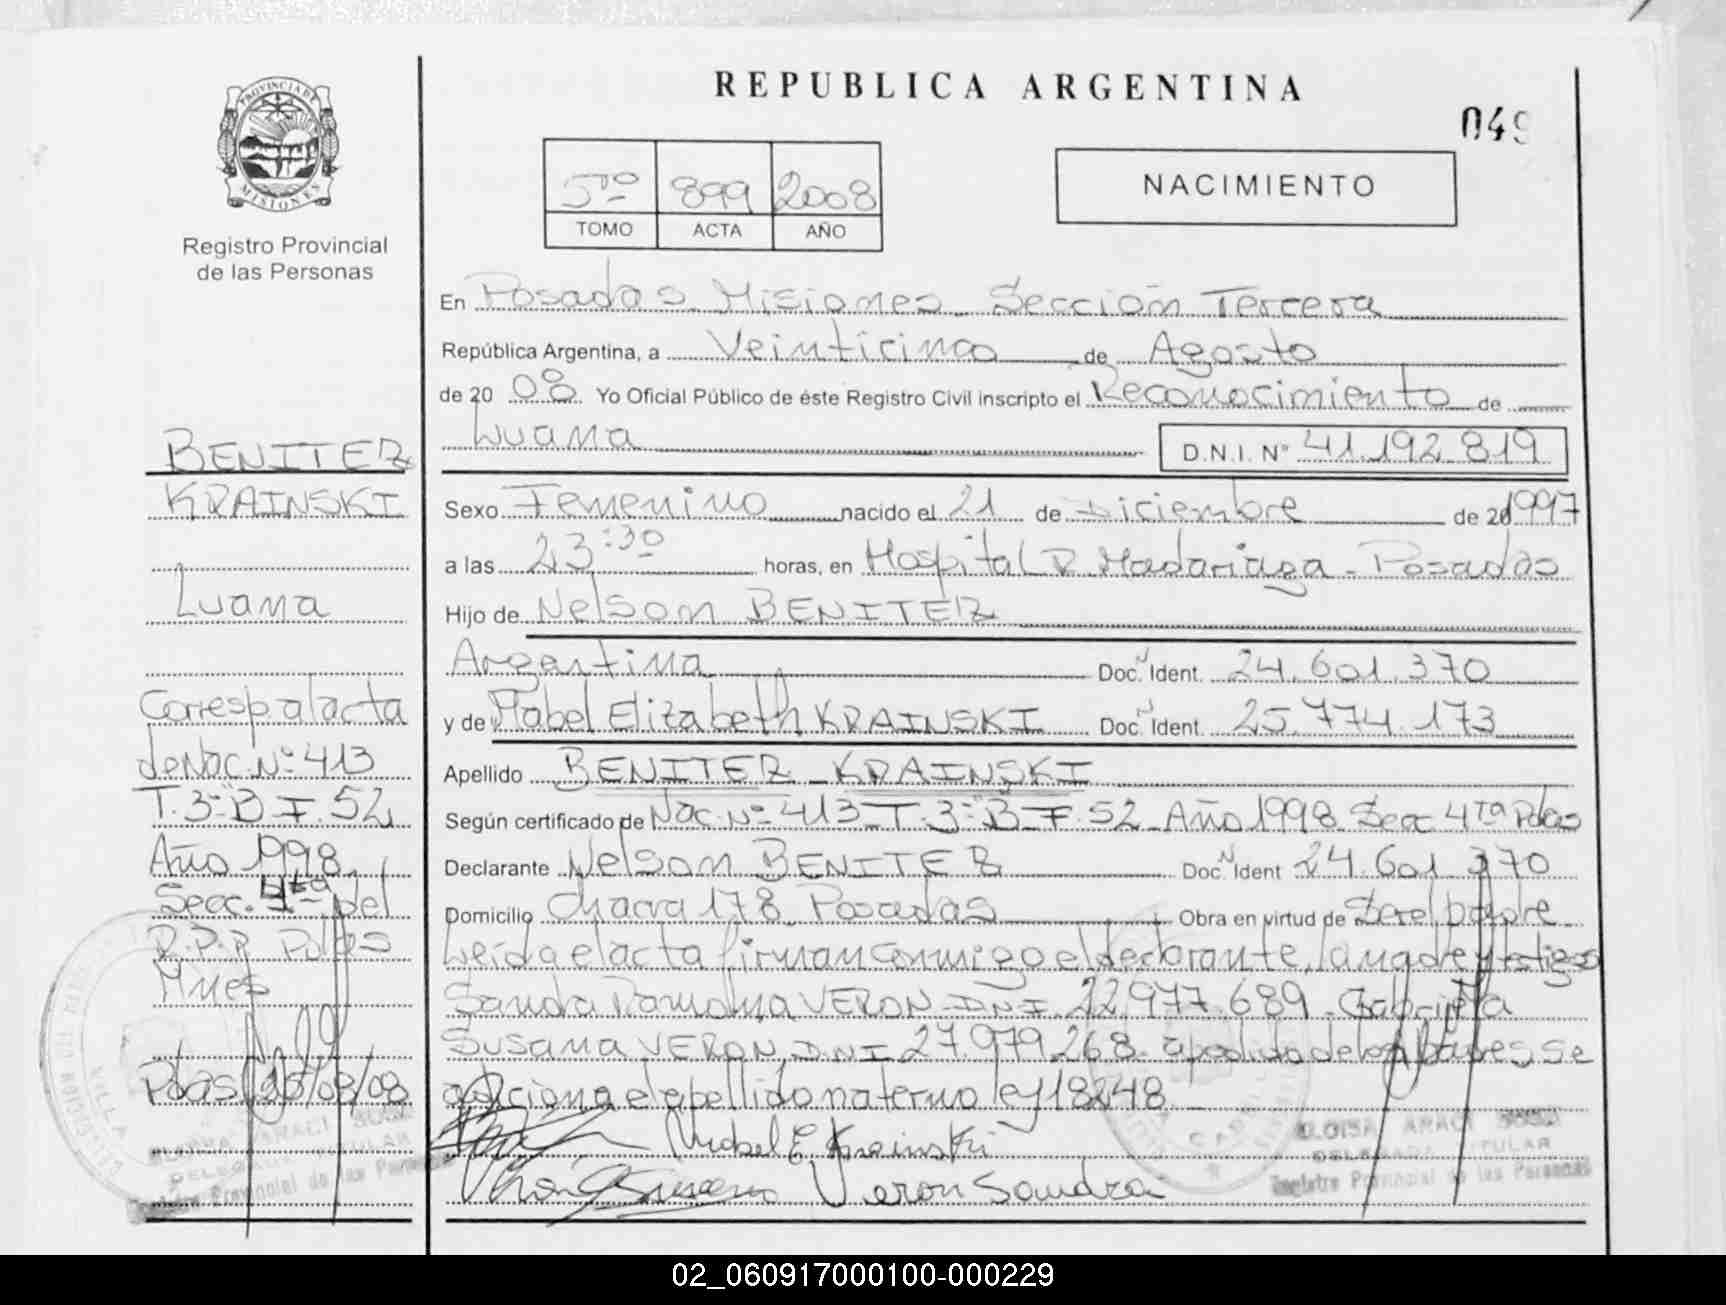 REPUBLICA ARGENTINA
049
PROVINCIA DE
MISIONES
Registro Provincial
de las Personas
5to 899 2008
TOMO ACTA AÑO
NACIMIENTO
En Posadas Misiones Sección Tercera
República Argentina, a Veinticinco de Agosto
de 20 08. Yo Oficial Público de éste Registro Civil inscripto el Reconocimiento de
Luana D.N.I. Nº 41.192.819
Sexo Femenino nacido el 21 de Diciembre de 20 1997
a las 23:30 horas, en Hospital R. Madariaga - Posadas
Hijo de Nelson BENITEZ
Argentina Doc. Ident. 24.601.370
y de Mabel Elizabeth KRAINSKI Doc. Ident. 25.774.173
Apellido BENITEZ KRAINSKI
Según certificado de Nac. Nº 413 T. 3º B F. 52 Año 1998 Secc 4ta Pdas
Declarante Nelson BENITEZ Doc. Ident 24.601.370
Domicilio Chacra 178 Posadas Obra en virtud de Ser el padre
Leida el acta firman conmigo el declarante, la madre y testigos
Sandra Ramona VERON D.N.I. 22.977.689 - Gabriela
Susana VERON D.N.I 27.979.268 a pedido de los padres se
adiciona el apellido materno ley 18248
Mabel E. Krainski
Veron Sandra
BENITEZ
KRAINSKI
Luana
Corresp al acta
de Nac. Nº 413
T. 3º B F. 52
Año 1998
Secc. 4ta del
R.P.P. Pdas
Mnes
Pdas 25/08/08
ELOISA ARACI
DELEGADA TITULAR
Registro Provincial de las Personas
ELOISA ARACI
DELEGADA TITULAR
Registro Provincial de las Personas
02_060917000100-000229